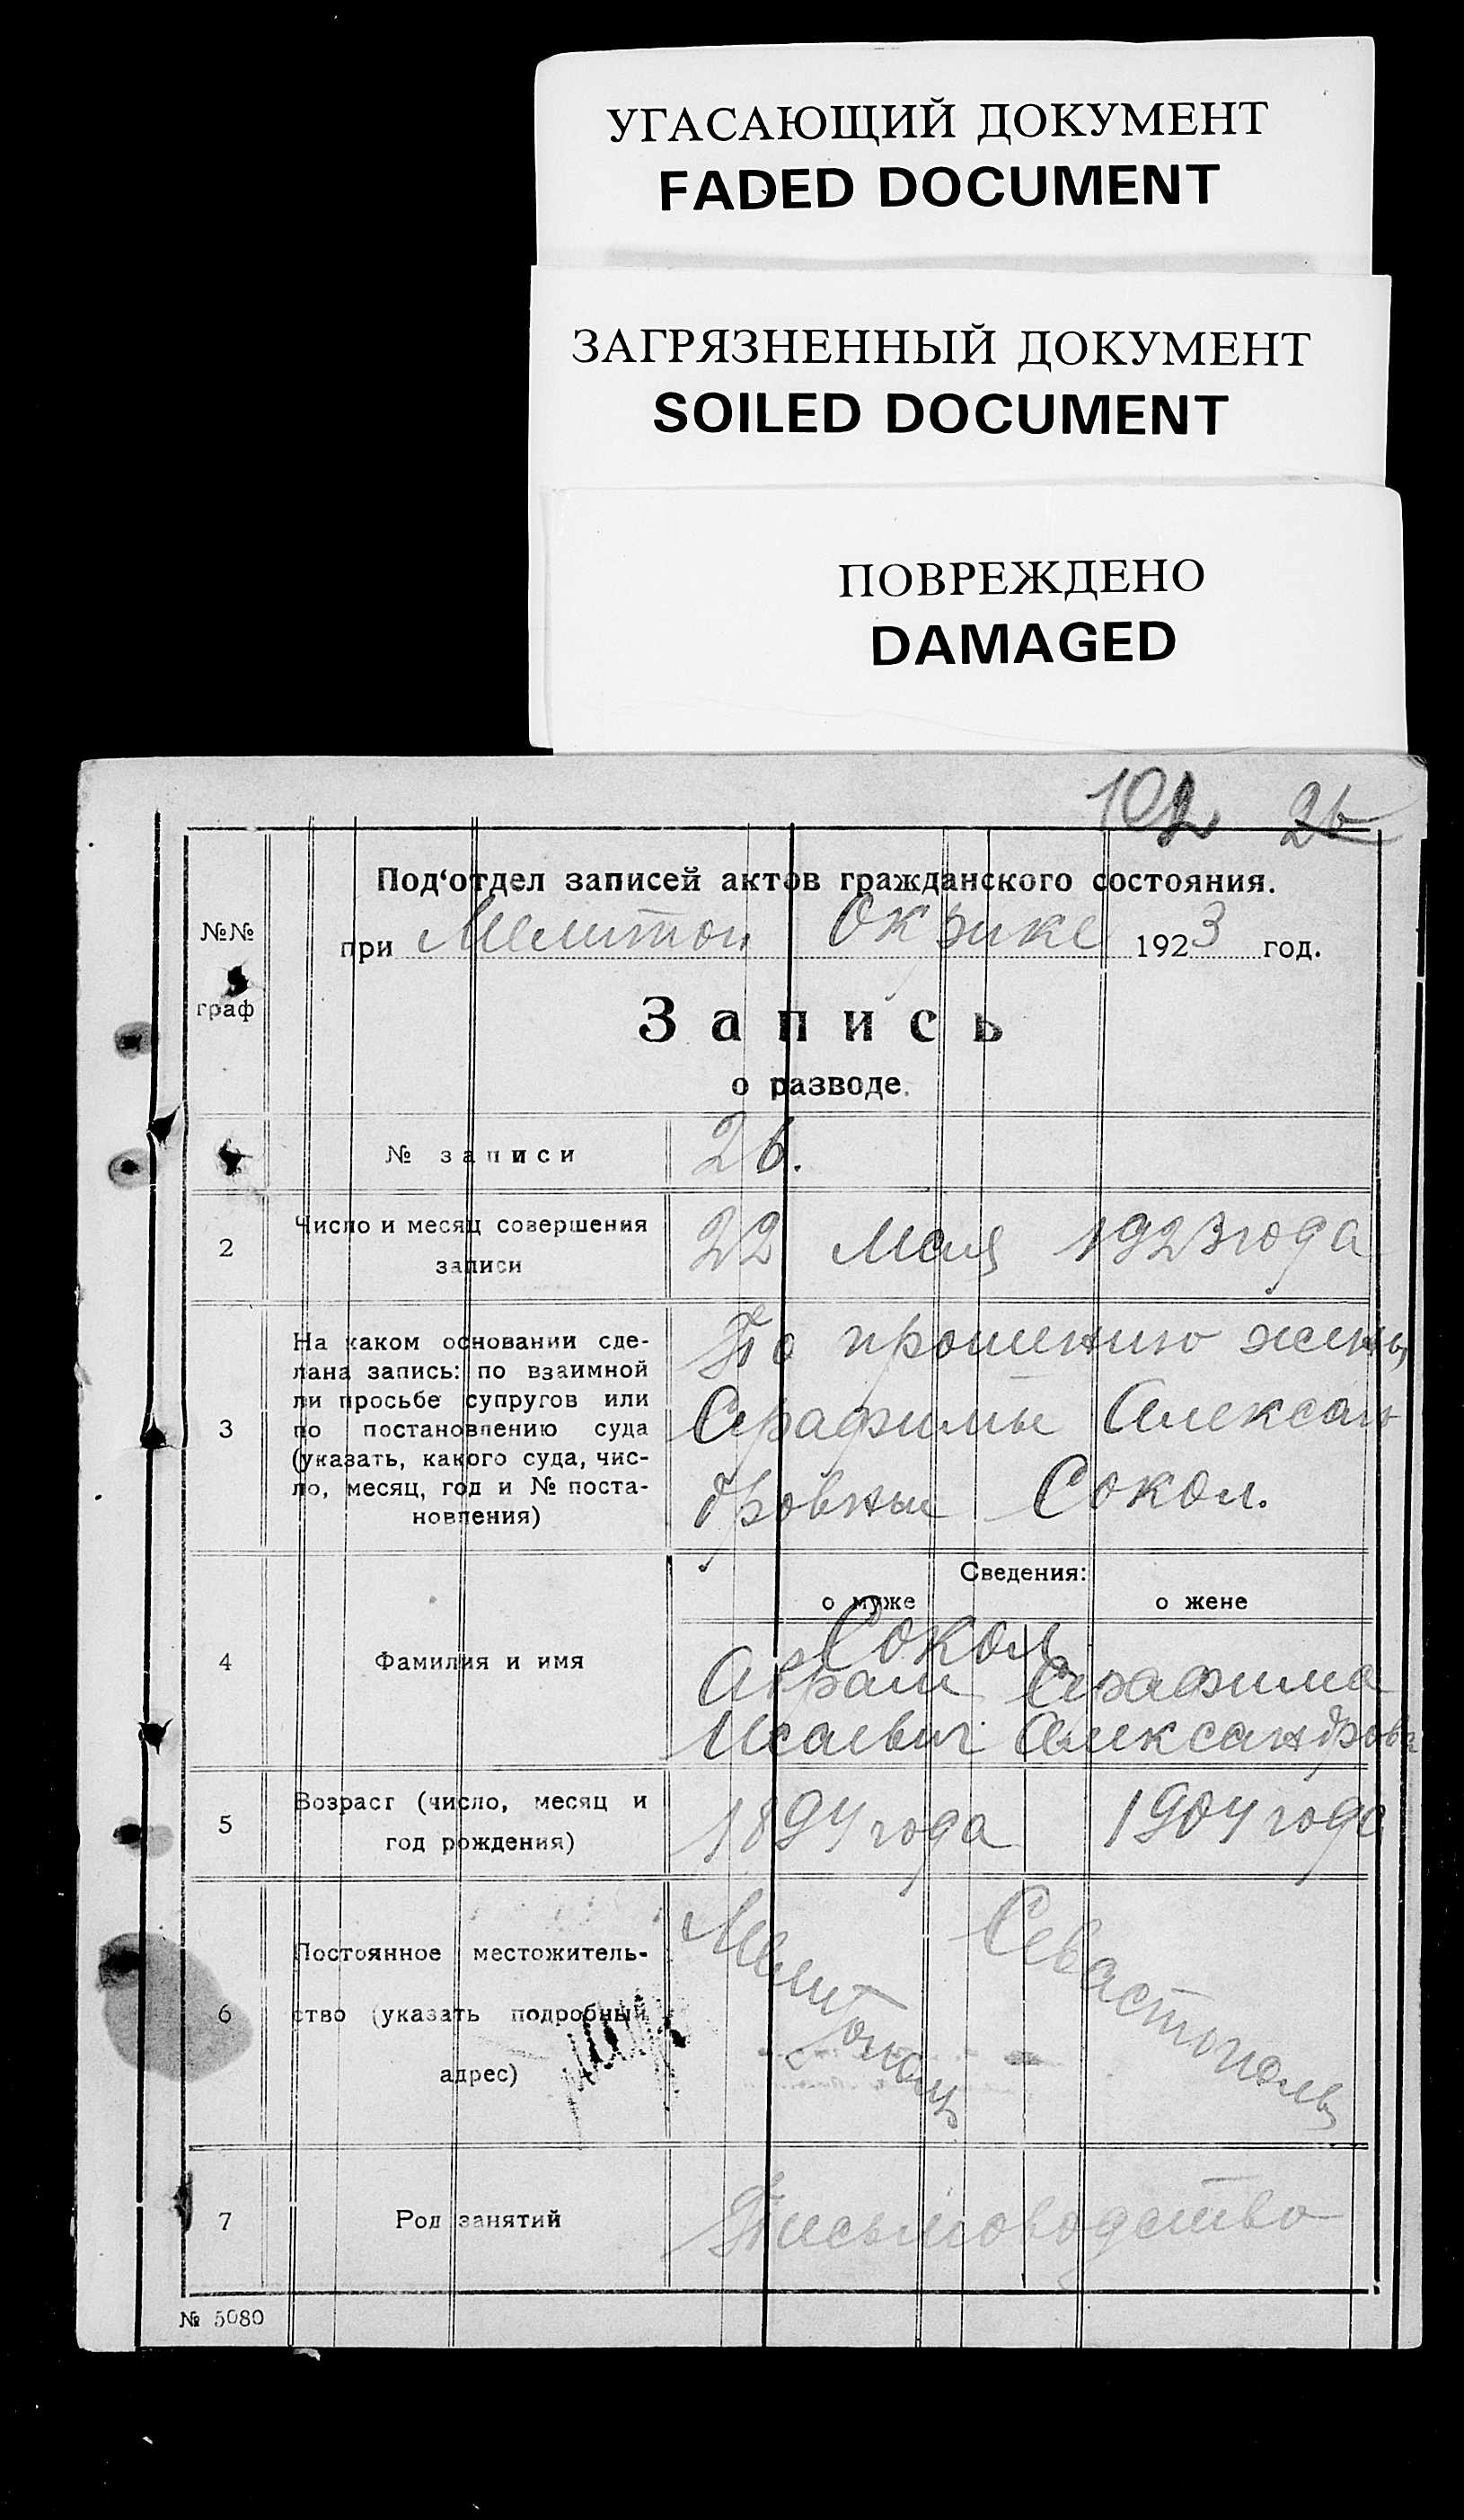 УГАСАЮЩИЙ ДОКУМЕНТ
FADED DOCUMENT
ЗАГРЯЗНЕННЫЙ ДОКУМЕНТ
SOILED DOCUMENT
ПОВРЕЖДЕНО
DAMAGED
102 26
Под‘отдел записей актов гражданского состояния.
№№
граф
при Мелитоп Окрике 1923 год.
Запись
о разводе.
№ записи 26.
2 Число и месяц совершения записи 22 Мая 1923 года
3 На каком основании сде-
лана запись: по взаимной
ли просьбе супругов или
по постановлению суда
(указать, какого суда, чис-
ло, месяц, год и № поста-
новления)
По прошению жены
Серафимы Алексан
дровны Сокол.
Сведения:
о муже о жене
4 Фамилия и имя
Сокол
Абрам Серафима
Исаевич Александровн
5 Возраст (число, месяц и
год рождения)
1894 года 1904 года
6 Постоянное местожитель-
ство (указать подробный
адрес)
Мелитополь Севастополь
7 Род занятий Письмоводство
№ 5080